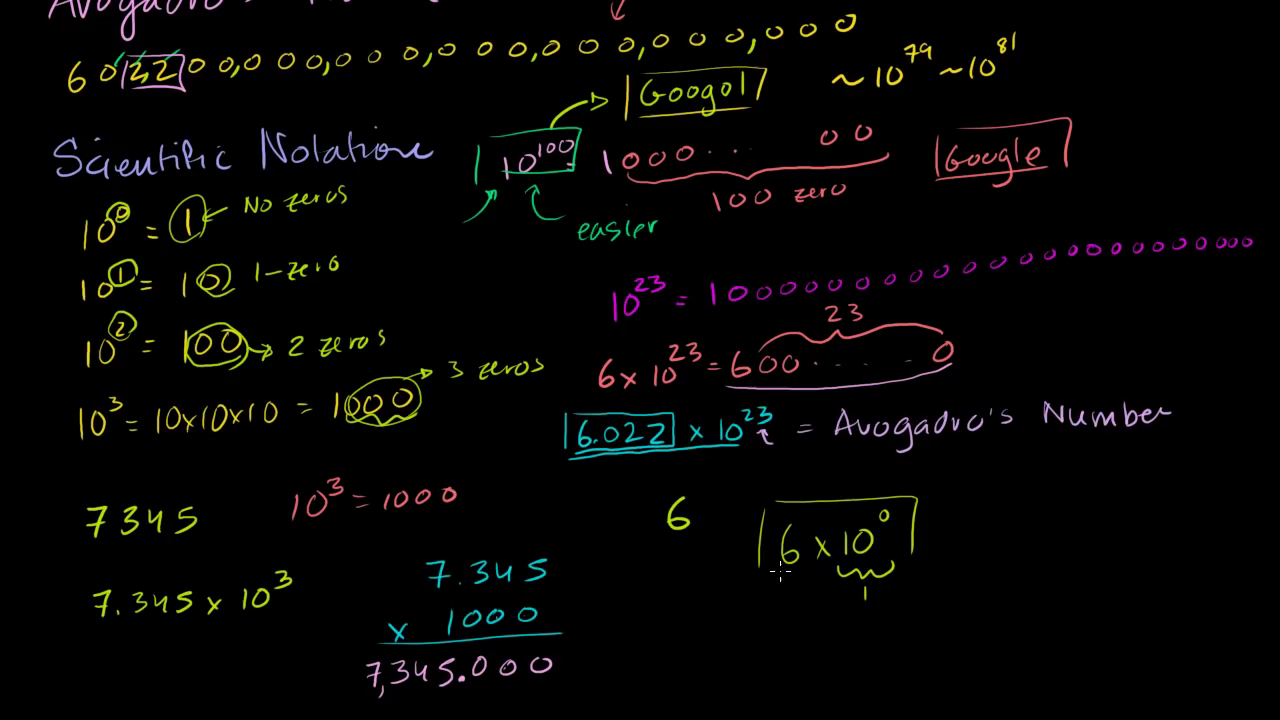 Avogadro's
6 0 2 2 0 0,0 0 0 0,0 0 0 0,0 0 0,0 0 0,0 0 0,0 0 0
Googol
~10^79 ~10^81
Scientific Notation
10^100 = 1 000... 00
100 zero
Google
easier
10^0 = 1 No zeros
10^1 = 10 1-zero
10^2 = 100 2 zeros
10^3 = 10x10x10 = 1000 3 zeros
10^23 = 100000000000000000000000
23
6 x 10^23 = 600.... 0
6.022 x 10^23 = Avogadro's Number
7345
10^3 = 1000
6
6 x 10^0
1
7.345 x 10^3
7.345
x 1000
7,345.000